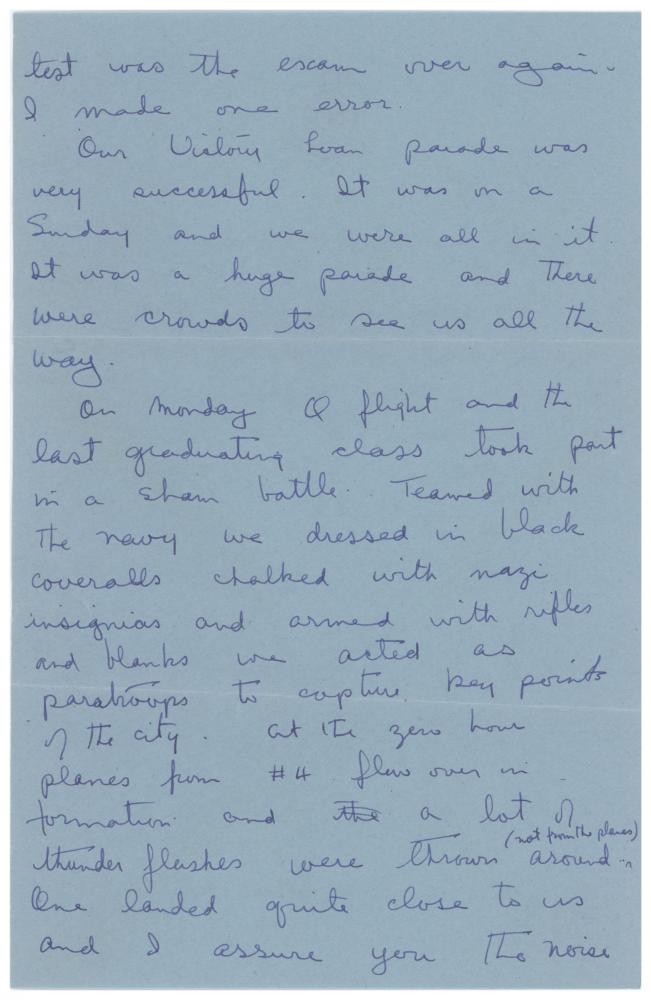 test was the escam over again.
I made one error.
Our Victory Loan parade was
very successful. It was on a
Sunday and we were all in it.
It was a huge parade and there
were crowds to see us all the
way.
On Monday Q flight and the
last graduating class took part
in a sham battle. Teamed with
the navy we dressed in black
coveralls chalked with nazi
insignias and armed with rifles
and blanks we acted as
paratroops to capture key points
of the city. At the zero hour
planes from #4 flew over in
formation and the a lot of
(not from the planes)
thunder flashes were thrown around.
One landed quite close to us
and I assure you the noise